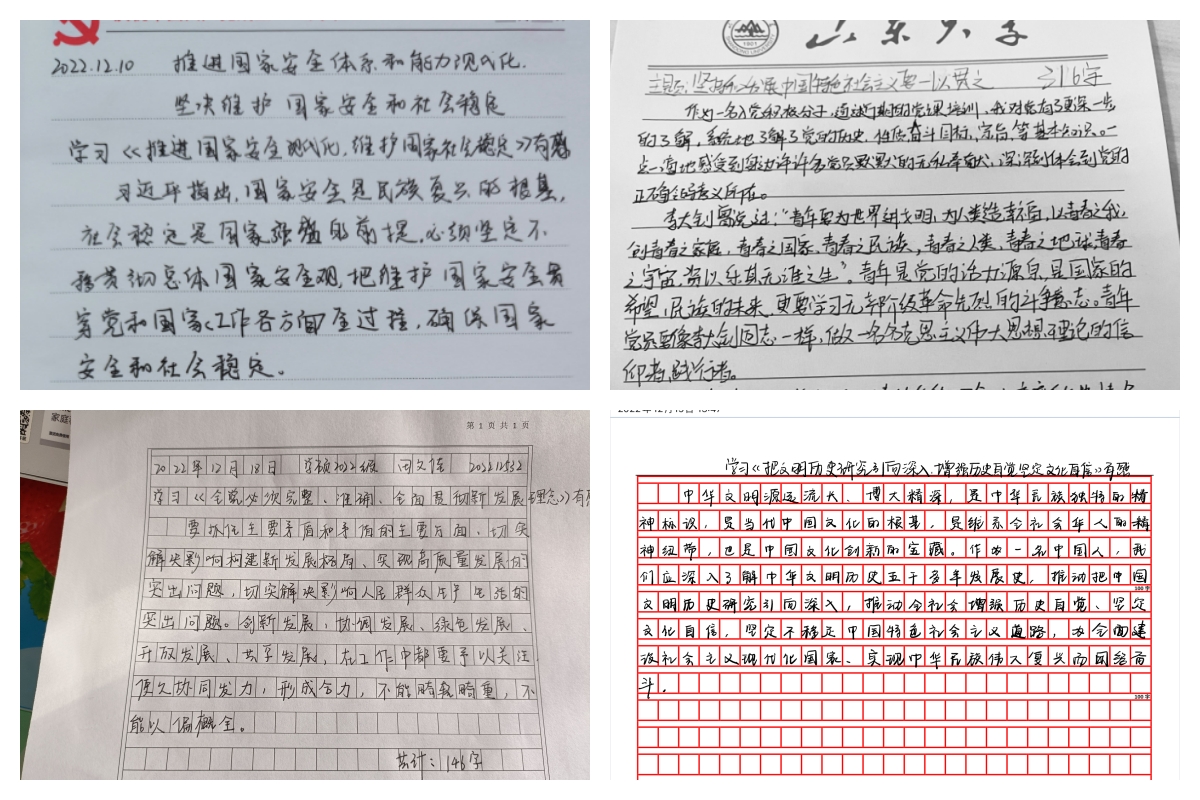 2022.12.10 推进国家安全体系和能力现代化.
坚决维护 国家安全和社会稳定
学习《推进国家安全现代化,维护国家社会稳定》有感
习近平指出,国家安全是民族复兴的根基,
社会稳定是国家强盛的前提。必须坚定不
移贯彻总体国家安全观,把维护国家安全贯
穿党和国家工作各方面全过程,确保国家
安全和社会稳定。
1901
山东大学
主题:坚持和发展中国特色社会主义要一以贯之 316字
作为一名入党积极分子,通过近期的党课培训,我对党有了更深一步
的了解,系统地了解了党的历史、性质奋斗目标,宗旨等基本知识。一
点一滴地感受到身边许许多多党员默默的无私奉献,深深刻体会到党的
正确性的意义所在。
李大钊曾说过:“青年要为世界进文明,为人类造幸福,以青春之我,
创青春之家庭,青春之国家,青春之民族,青春之人类,青春之地球,青春
之宇宙,资以乐其无涯之生”。青年是党的活力源泉,是国家的
希望,民族的未来,更要学习无产阶级革命先烈的斗争意志。青年
党员要像李大钊同志一样,做一名马克思主义伟大思想理论的信
仰者,践行者。
第 1 页 共 1 页
家庭
2022年12月18日 学硕2022级 田久佳 202212532
学习《全党必须完整、准确、全面贯彻新发展理念》有
要抓住主要矛盾和矛盾的主要方面,切实
解决影响构建新发展格局、实现高质量发展的
突出问题,切实解决影响人民群众生产生活的
突出问题。创新发展,协调发展、绿色发展、
开放发展、共享发展,在工作中都要予以关注
使之协同发力,形成合力,不能畸轻畸重,不
能以偏概全。
共计:146字
学习《把文明历史研究引向深入,增强历史自觉坚定文化自信》有感
中华文明源远流长、博大精深,是中华民族独特的精
神标识,是当代中国文化的根基,是维系全社会华人的精
神纽带,也是中国文化创新的宝藏。作为一名中国人,我
们应深入了解中华文明历史五千多年发展史,推动把中国
100字
文明历史研究引向深入,推动全社会增强历史自觉、坚定
文化自信,坚定不移走中国特色社会主义道路,为全面建
设社会主义现代化国家、实现中华民族伟大复兴而团结奋
斗。
200字